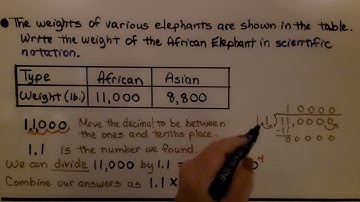 • The weights of various elephants are shown in the table.
Write the weight of the African Elephant in scientific
notation.
Type African Asian
Weight (lb.) 11,000 8,800
1,1000 Move the decimal to be between
the ones and tenths place.
1.1 is the number we found.
We can divide 11,000 by 1.1 =
Combine our answers as 1.1 ×
1 0000
1.1 11,0000
-11
00000